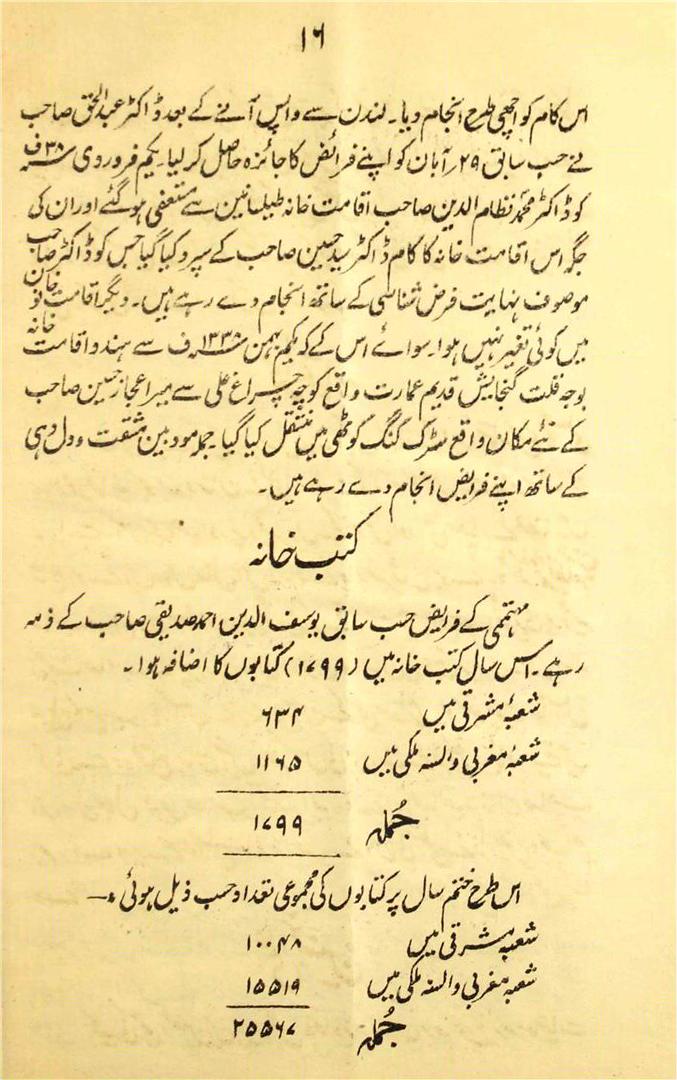 ۱۶
اس کام کو اچھی طرح انجام دیا۔ لندن سے واپس آنے کے بعد ڈاکٹر عبدالحق صاحب
نے حسب سابق ۲۹ر آبان کو اپنے فرائض کا جائزہ حاصل کر لیا۔ یکم فروردی ۳۸ف
کو ڈاکٹر محمد نظام الدین صاحب اقامت خانہ طیلسانین سے مستعفی ہو گئے اور ان کی
جگہ اس اقامت خانہ کا کام ڈاکٹر سید حسین صاحب کے سپرد کیا گیا جس کو ڈاکٹر صاحب
موصوف نہایت فرض شناسی کے ساتھ انجام دے رہے ہیں۔ دیگر اقامت خانوں
میں کوئی تغیر نہیں ہوا۔ سوائے اس کے کہ یکم بہمن ۱۳۳۸ف سے ہندو اقامت خانہ
بوجہ قلت گنجایش قدیم عمارت واقع کوچہ چراغ علی سے میر اعجاز حسین صاحب
کے نئے مکان واقع سڑک کنگ کوٹھی میں منتقل کیا گیا۔ جملہ مودبین مشقت و دل دہی
کے ساتھ اپنے فرایض انجام دے رہے ہیں۔
کتب خانہ
مہتممی کے فرایض حسب سابق یوسف الدین احمد صدیقی صاحب کے ذمہ
رہے۔ اس سال کتب خانہ میں (۱۷۹۹) کتابوں کا اضافہ ہوا۔
شعبۂ مشرقی میں ۶۳۴
شعبۂ مغربی و السنہ ملکی میں ۱۱۶۵
جُملہ ۱۷۹۹
اس طرح ختم سال پر کتابوں کی مجموعی تعداد حسب ذیل ہوئی :۔
شعبہ مشرقی میں ۱۰۰۴۸
شعبہ مغربی و السنہ ملکی میں ۱۵۵۱۹
جُملہ ۲۵۵۶۷